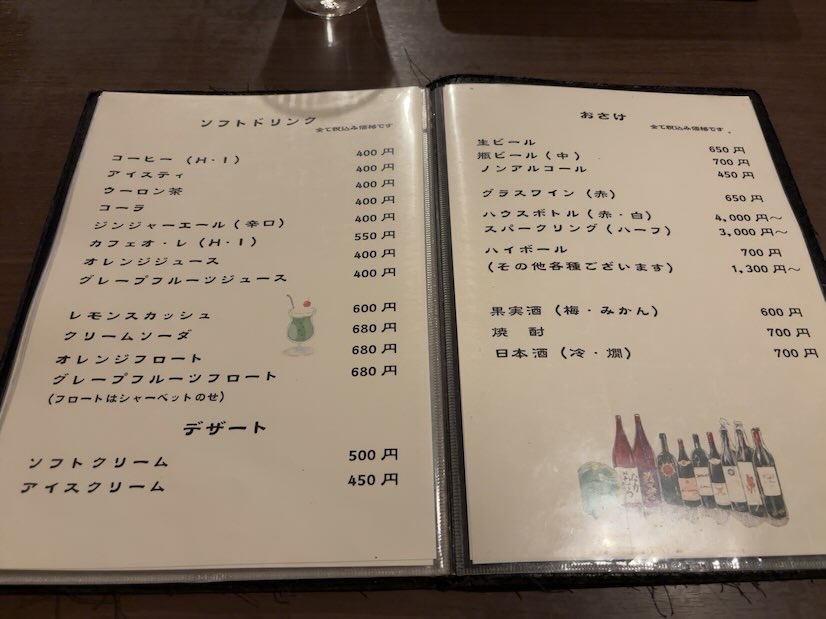 ソフトドリンク
全て税込み価格です
コーヒー (H・I) 400 円
アイスティ 400 円
ウーロン茶 400 円
コーラ 400 円
ジンジャーエール (辛口) 400 円
カフェオ・レ (H・I) 550 円
オレンジジュース 400 円
グレープフルーツジュース 400 円
レモンスカッシュ 600 円
クリームソーダ 680 円
オレンジフロート 680 円
グレープフルーツフロート 680 円
(フロートはシャーベットのせ)
デザート
ソフトクリーム 500 円
アイスクリーム 450 円
おさけ
全て税込み価格です。
生ビール 650 円
瓶ビール (中) 700 円
ノンアルコール 450 円
グラスワイン (赤) 650 円
ハウスボトル (赤・白) 4,000 円～
スパークリング (ハーフ) 3,000 円～
ハイボール 700 円
(その他各種ございます) 1,300 円～
果実酒 (梅・みかん) 600 円
焼 酎 700 円
日本酒 (冷・燗) 700 円